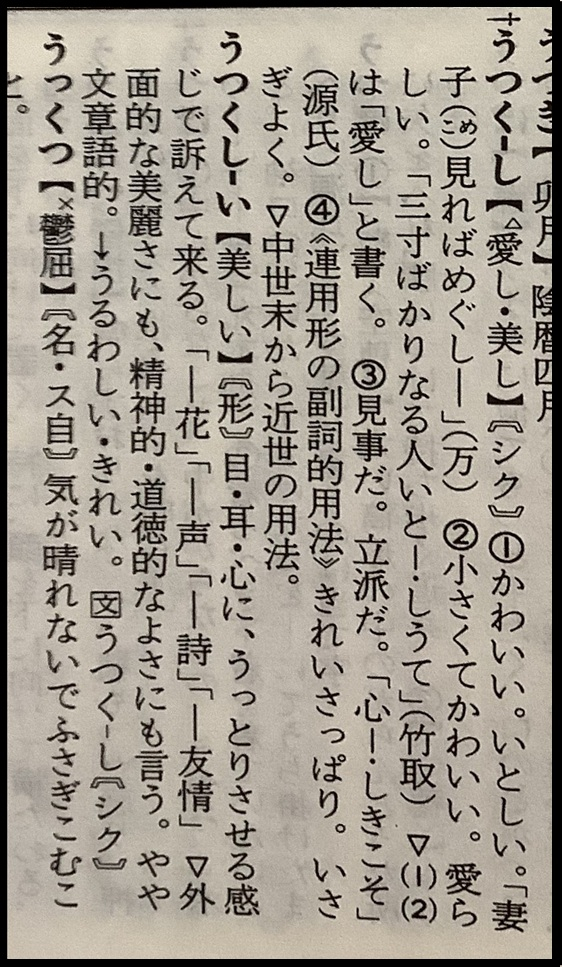 うつき【卯月】陰暦四月
†うつく‐し【△愛し・美し】〘シク〙①かわいい。いとしい。「妻
子(こめ)見ればめぐし―」(万) ②小さくてかわいい。愛ら
しい。「三寸ばかりなる人いと―・しうて」(竹取) ▽(1)(2)
は「愛し」と書く。③見事だ。立派だ。「心―・しきこそ」
(源氏) ④《連用形の副詞的用法》きれいさっぱり。いさ
ぎよく。▽中世末から近世の用法。
うつくし‐い【美しい】〘形〙目・耳・心に、うっとりさせる感
じで訴えて来る。「―花」「―声」「―詩」「―友情」▽外
面的な美麗さにも、精神的・道徳的なよさにも言う。やや
文章語的。→うるわしい・きれい。文うつく‐し〘シク〙
うっくつ【×鬱屈】〘名・ス自〙気が晴れないでふさぎこむこ
と。